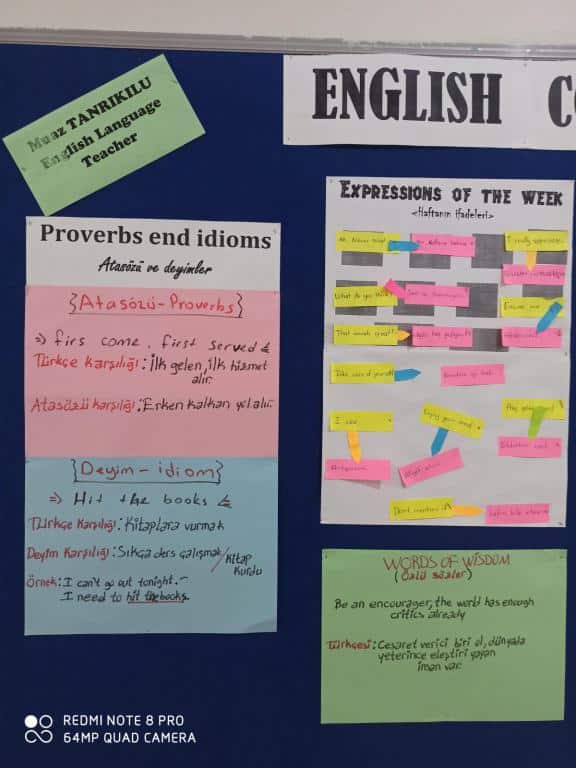 Muaz TANRIKILU
English Language
Teacher
ENGLISH C
Proverbs end idioms
Atasözü ve deyimler
{Atasözü-Proverbs}
=> firs come, first served
Türkçe karşılığı: İlk gelen, ilk hizmet
alır.
Atasözü karşılığı: Erken kalkan yol alır.
{Deyim-idiom}
=> Hit the books
Türkçe karşılığı: Kitaplara vurmak
Deyim karşılığı: Sıkça ders çalışmak/kitap
kurdu
Örnek: I can't go out tonight.
I need to hit the books.
EXPRESSIONS OF THE WEEK
<Haftanın ifadeleri>
What do you think?
Take care of yourself
Enjoy your meal
Don't mention it
WORDS OF WISDOM
(Özlü sözler)
Be an encourager, the world has enough
critics already
Türkçesi: Cesaret verici biri ol, dünyada
yeterince eleştiri yayan
iman var.
REDMI NOTE 8 PRO
64MP QUAD CAMERA